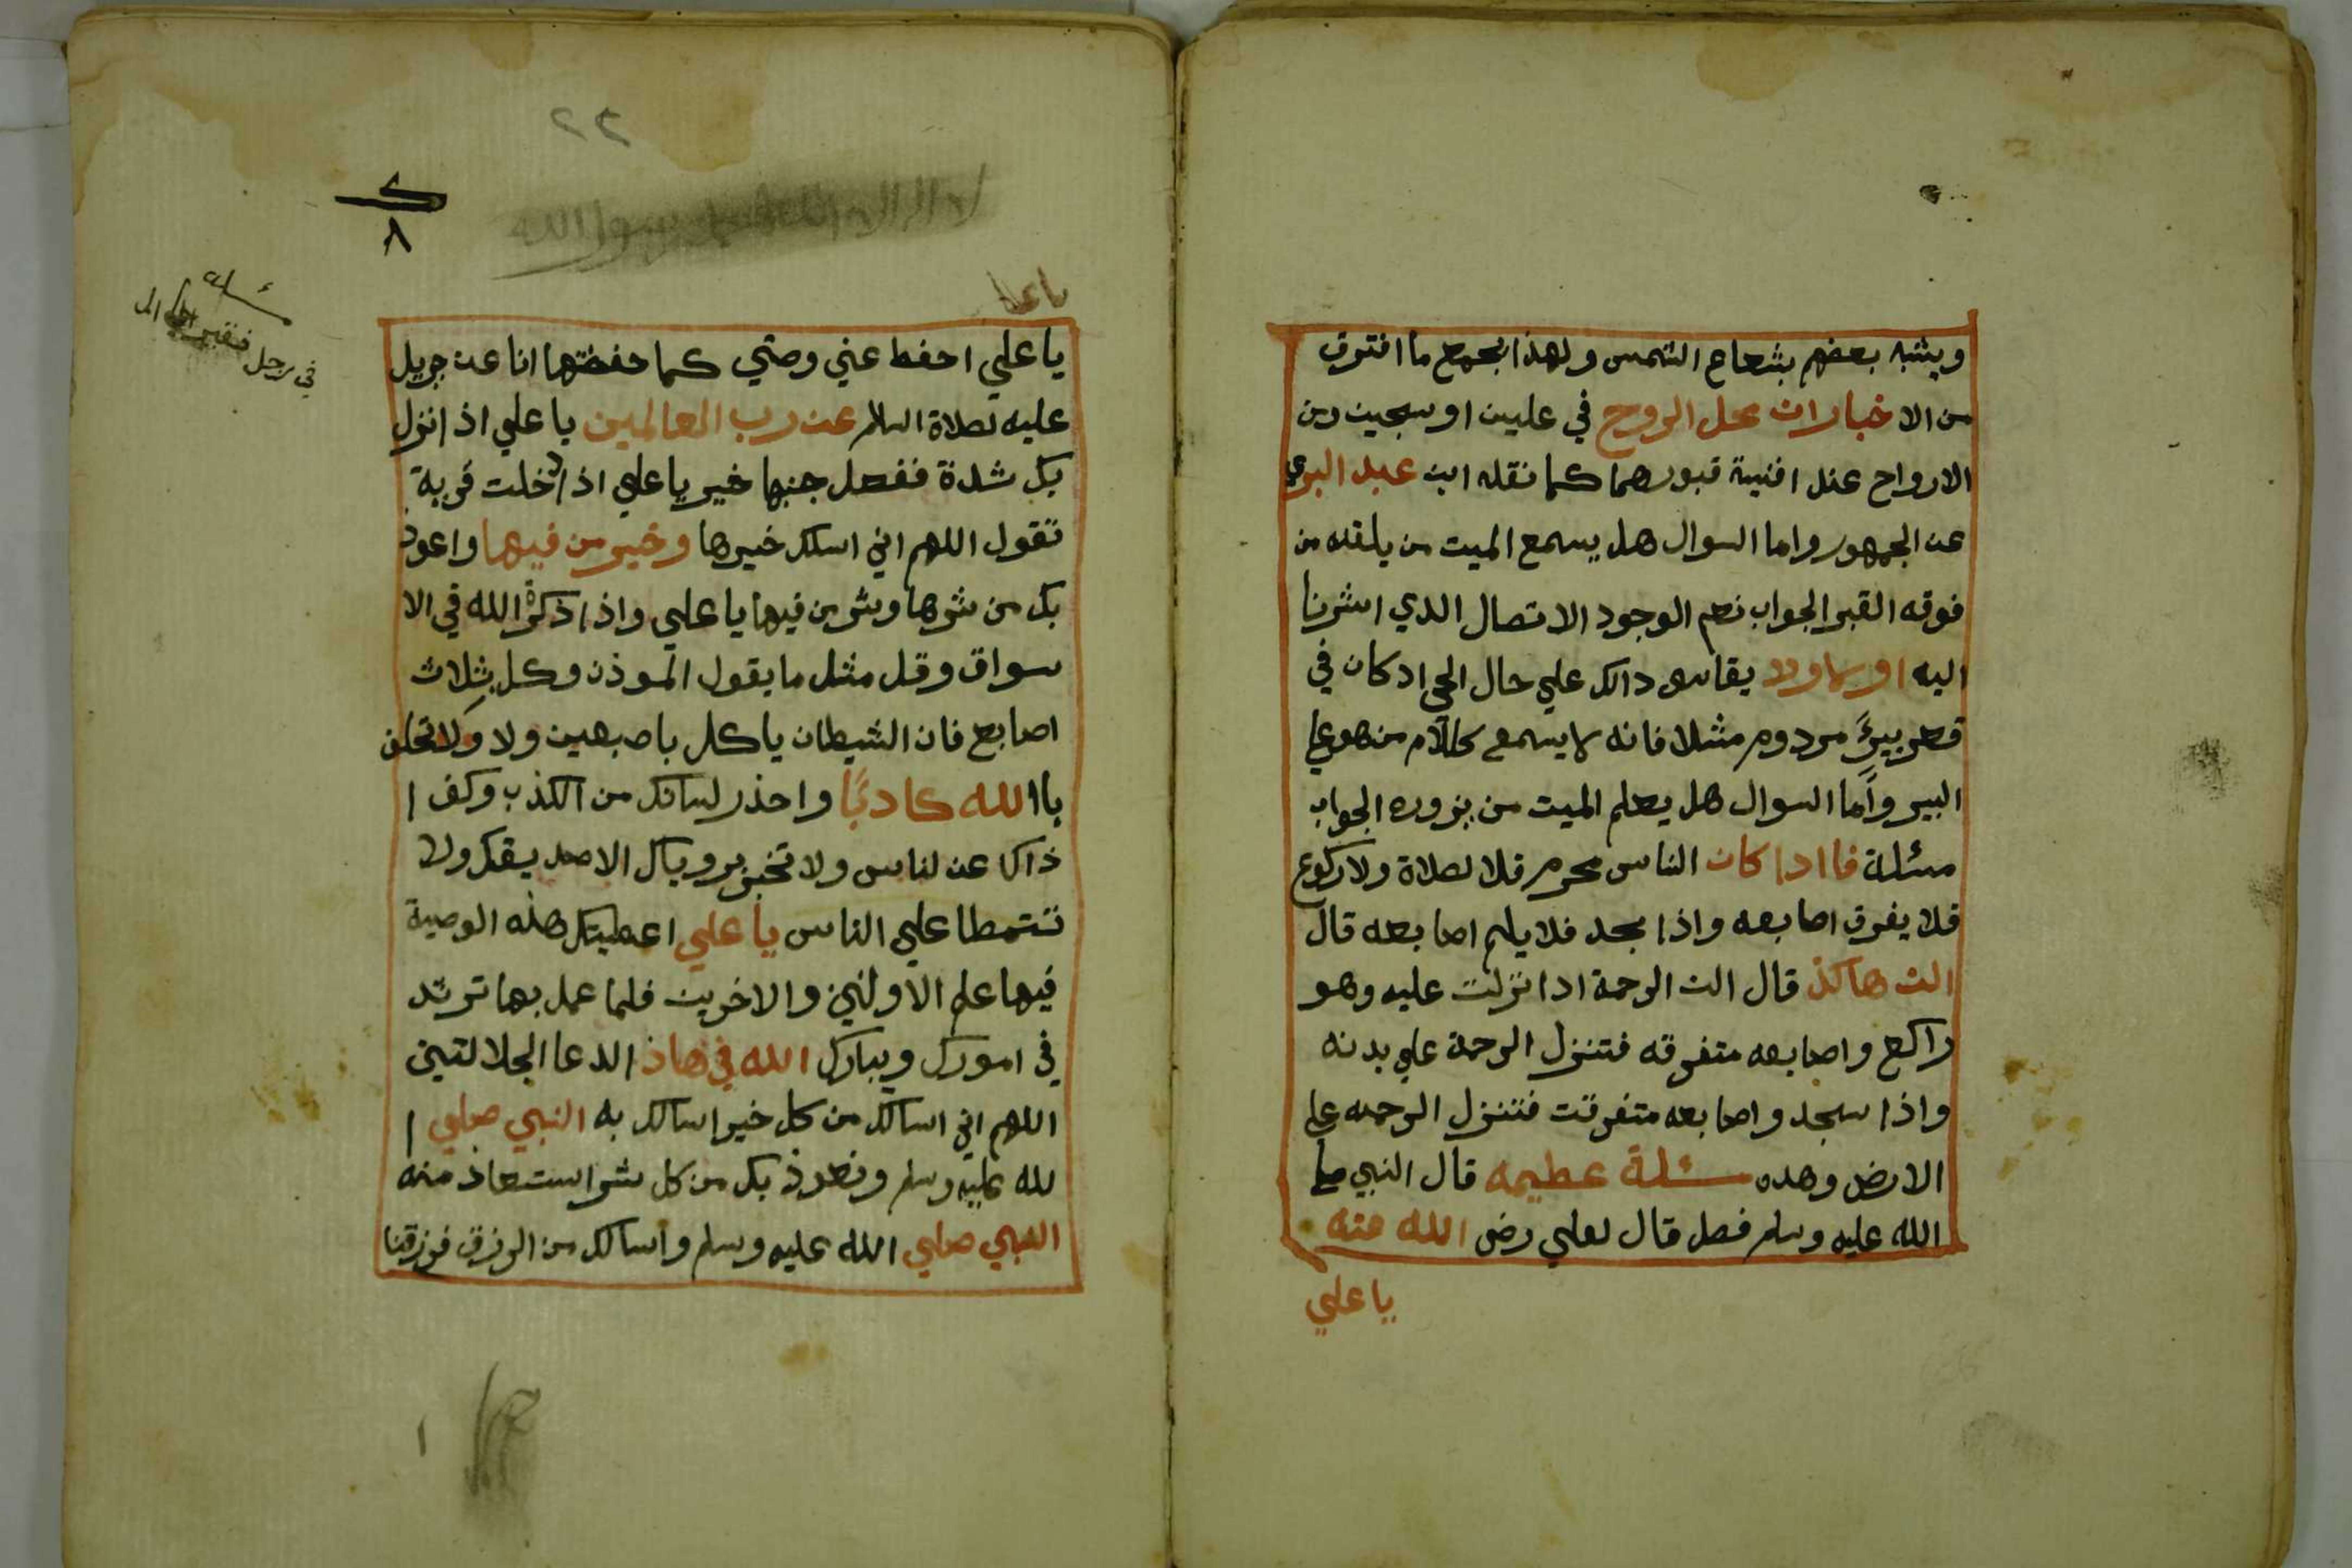 ويشبه بعضهم بشعاع الشمس ولهذا يجمع ما افترق
من الاخبارات محل الروح في عليين او سجين ومن
الارواح عند افنية قبورهما كما نقله ابن عبد البر
عن الجمهور واما السوال هل يسمع الميت من يلقنه من
فوقه القبر الجواب نعم الوجود الاتصال الدي اشرنا
اليه يقاس دالك علي حال الحي ادكان في
قعر بيرً مردوم مثلا فانه لا يسمع كلام من هو علي
البير واما السوال هل يعلم الميت من يزوره الجواب
مسئلة فا ادا كان الناس محرم فلا لصلاة ولا ركوع
فلا يفرق اصابعه واذا سجد فلا يلم اصابعه قال
الت هاكذ قال الت الرحمة ادا نزلت عليه وهو
راكع واصابعه متفرقه فتنزل الرحمة علي بدنه
واذا سجد واصابعه متفرقت فتنزل الرحمه علي
الارض وهده مسئلة عطيمه قال النبي صلي
الله عليه وسلم فصل قال لعلي رضي الله عنه
يا علي
٢٢
لا اله الا الله محمد رسول الله
٨
مسئلة
في رجل
يا علي
يا علي احفط عني وصتي كما حفضتها انا عن جريل
عليه لصلاة السلام عن رب العالمين يا علي اذ انزل
بك شدة ففصل جنبها خير يا علي اذا دخلت قرية
تقول اللهم اني اسلك خيرها وخير من فيها واعود
بك من شرها وشر من فيها يا علي واذا ذكرة الله في الا
سواق وقل مثل ما يقول الموذن وكل بثلاث
اصابع فان الشيطان ياكل باصبعين ولا ولا تحلف
باالله كادبًا واحذر لسانك من الكذب وكف ا
ذاك عن لناس ولا تخبر بروياك الا صديقك ولا
تتمطا علي الناس يا علي اعطيتك هذه الوصية
فيها علم الاولين والاخرين فلما عمل بها ترتد
في امورك ويبارك الله في هاذ الدعا الجلالتين
اللهم اني اسالك من كل خير اسالك به النبي صلي ا
لله عليه وسلم ونعوذ بك من كل شر استعاذ منه
النبي صلي الله عليه وسلم واسالك من الرزق فرزقنا
١